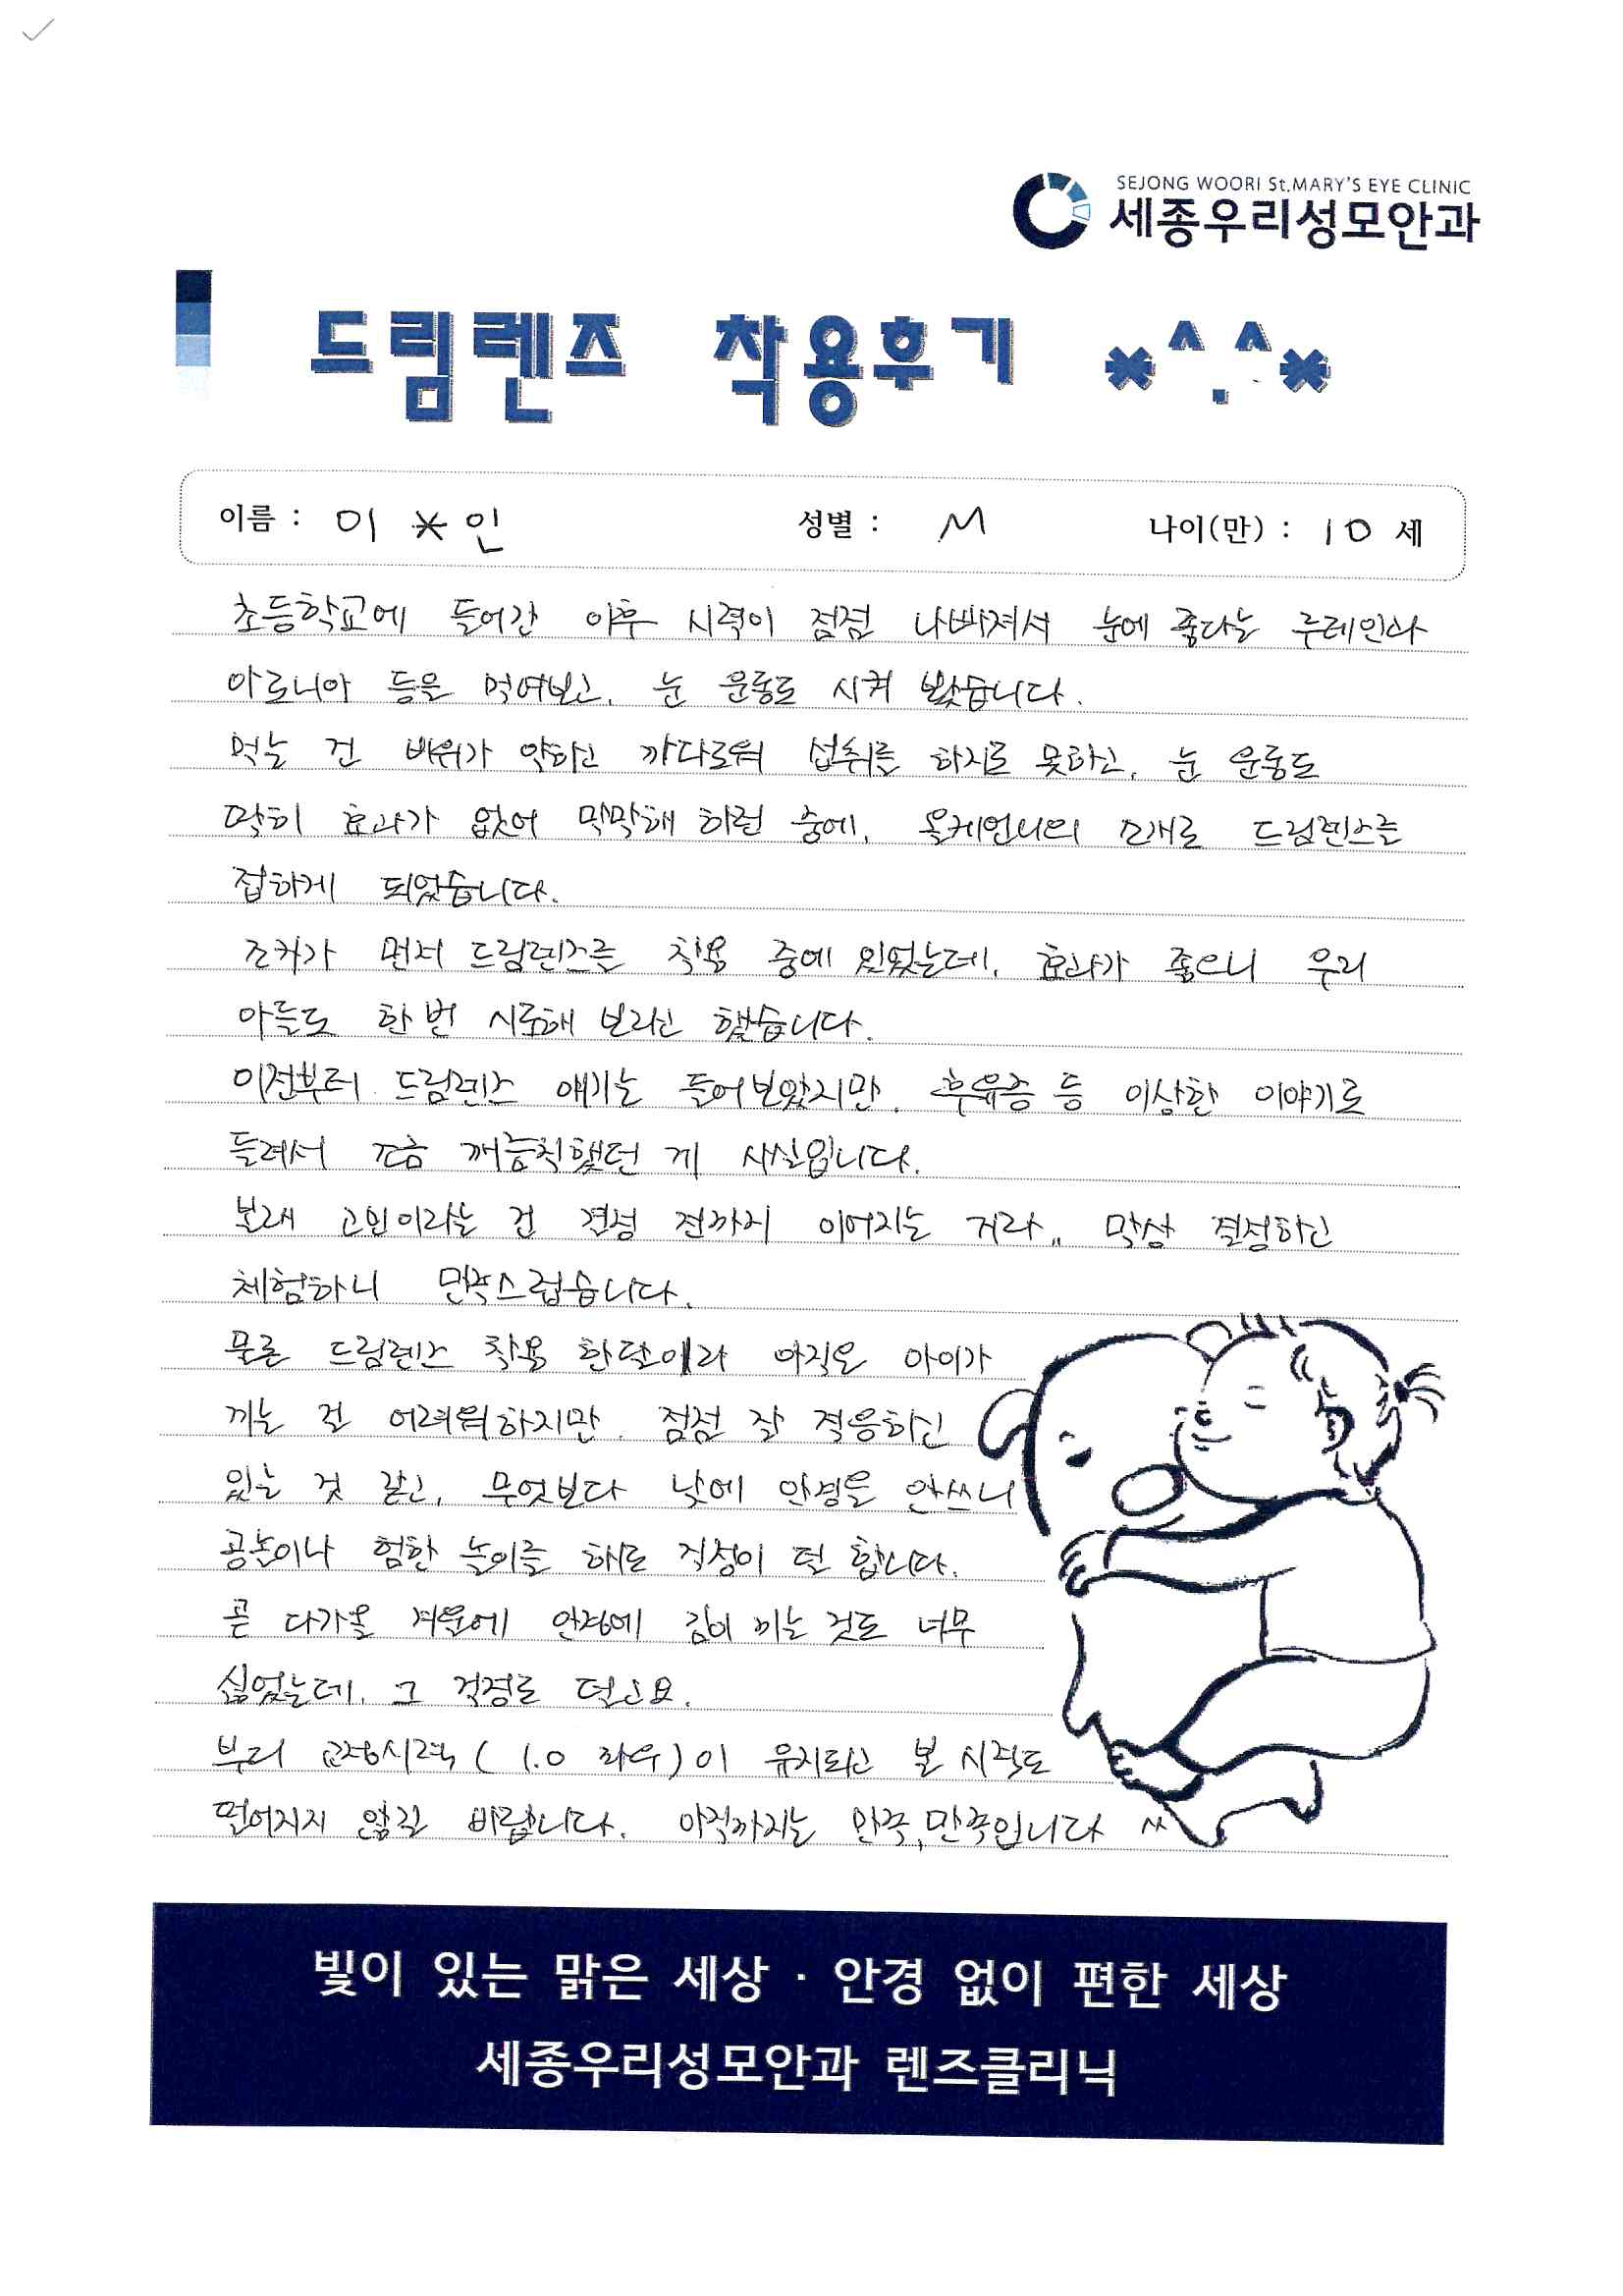 SEJONG WOORI St.MARY'S EYE CLINIC
세종우리성모안과
드림렌즈 착용후기 *^.^*
이름 : 이 * 인 성별 : M 나이(만) : 10 세
초등학교에 들어간 이후 시력이 점점 나빠져서 눈에 좋다는 루테인과
아로니아 등을 먹여보고, 눈 운동도 시켜 봤습니다.
먹는 건 비위가 약하고 까다로워 섭취를 하지도 못하고, 눈 운동도
딱히 효과가 없어 막막해 하던 중에, 올케언니의 소개로 드림렌즈를
접하게 되었습니다.
조카가 먼저 드림렌즈를 착용 중에 있었는데, 효과가 좋으니 우리
아들도 한번 시도해 보라고 했습니다.
이전부터 드림렌즈 얘기는 들어보았지만, 후유증 등 이상한 이야기도
들려서 조금 께름칙했던 게 사실입니다.
본래 고민이라는 건 결정 전까지 이어지는 거라,, 막상 결정하고
체험하니 만족스럽습니다.
물론 드림렌즈 착용 한달이라 아직은 아이가
끼는 걸 어려워하지만, 점점 잘 적응하고
있는 것 같고, 무엇보다 낮에 안경을 안쓰니
공놀이나 험한 놀이를 해도 걱정이 덜 합니다.
곧 다가올 겨울에 안경에 김이 끼는 것도 너무
싫었는데, 그 걱정도 덜고요.
부디 교정시력( 1.0 좌우)이 유지되고 본 시력도
떨어지지 않길 바랍니다. 아직까지는 만족,만족입니다 ^^
빛이 있는 맑은 세상 · 안경 없이 편한 세상
세종우리성모안과 렌즈클리닉